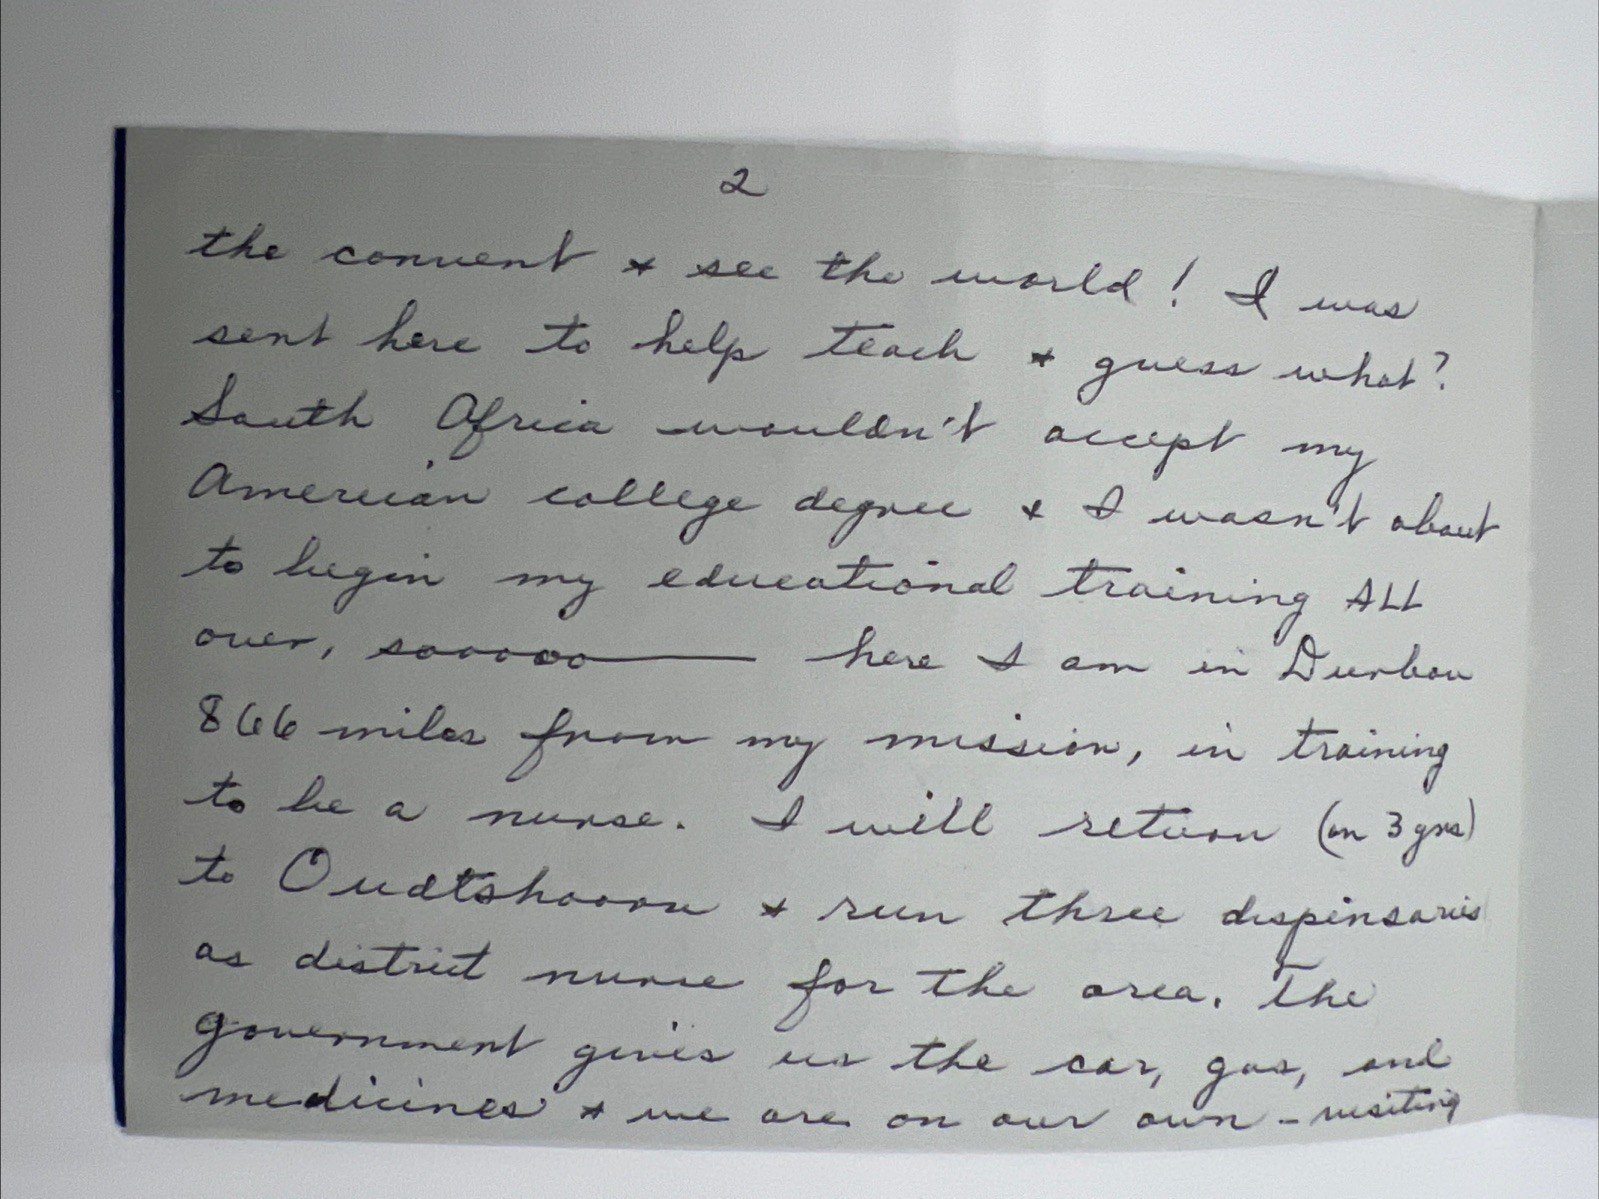 2
the convent & see the world! I was
sent here to help teach & guess what?
South Africa wouldn't accept my
American college degree & I wasn't about
to begin my educational training ALL
over, soooooo—— here I am in Durban
866 miles from my mission, in training
to be a nurse. I will return (in 3 yrs)
to Oudtshoorn & run three dispensaries
as district nurse for the area. The
government gives us the car, gas, and
medicines & we are on our own - visiting